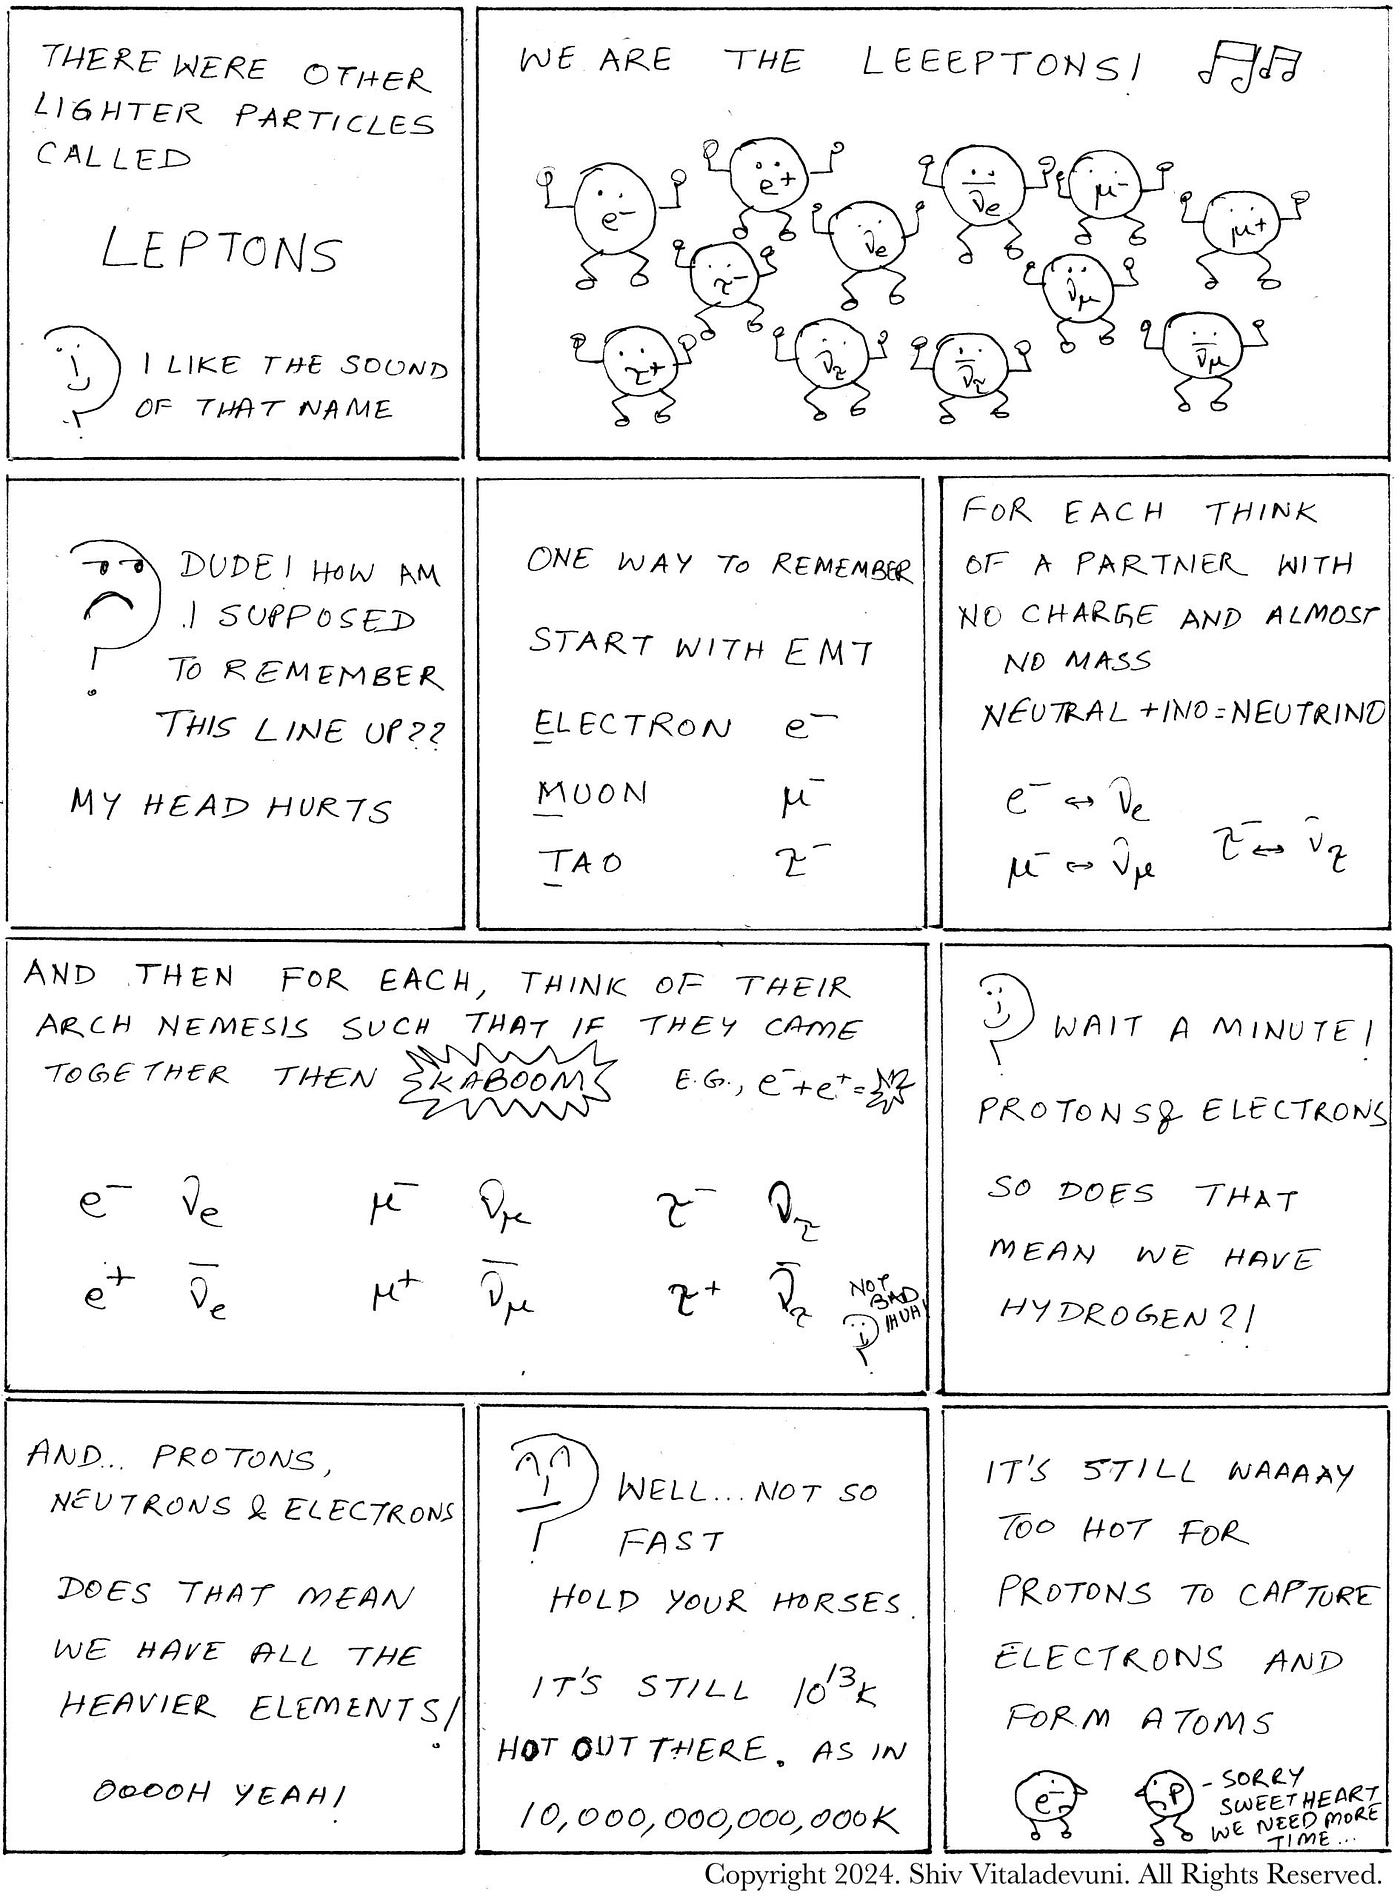 THERE WERE OTHER
LIGHTER PARTICLES
CALLED
LEPTONS
I LIKE THE SOUND
OF THAT NAME
WE ARE THE LEEEPTONS!
e-
e+
ν̄e
μ-
μ+
νe
τ-
νμ
τ+
ντ
ν̄τ
ν̄μ
DUDE! HOW AM
I SUPPOSED
TO REMEMBER
THIS LINE UP??
MY HEAD HURTS
ONE WAY TO REMEMBER
START WITH EMT
ELECTRON e-
MUON μ-
TAO τ-
FOR EACH THINK
OF A PARTNER WITH
NO CHARGE AND ALMOST
NO MASS
NEUTRAL + INO = NEUTRINO
e- ↔ νe
μ- ↔ νμ
τ- ↔ ντ
AND THEN FOR EACH, THINK OF THEIR
ARCH NEMESIS SUCH THAT IF THEY CAME
TOGETHER THEN KABOOM E.G., e- + e+ =
e- νe μ- νμ τ- ντ
e+ ν̄e μ+ ν̄μ τ+ ν̄τ
NOT
BAD
HUH!
WAIT A MINUTE!
PROTONS & ELECTRONS
SO DOES THAT
MEAN WE HAVE
HYDROGEN?!
AND... PROTONS,
NEUTRONS & ELECTRONS
DOES THAT MEAN
WE HAVE ALL THE
HEAVIER ELEMENTS!
OOOOH YEAH!
WELL...NOT SO
FAST
HOLD YOUR HORSES.
IT'S STILL 10^13 K
HOT OUT THERE. AS IN
10,000,000,000,000K
IT'S STILL WAAAAY
TOO HOT FOR
PROTONS TO CAPTURE
ELECTRONS AND
FORM ATOMS
e-
P
- SORRY
SWEETHEART
WE NEED MORE
TIME...
Copyright 2024. Shiv Vitaladevuni. All Rights Reserved.